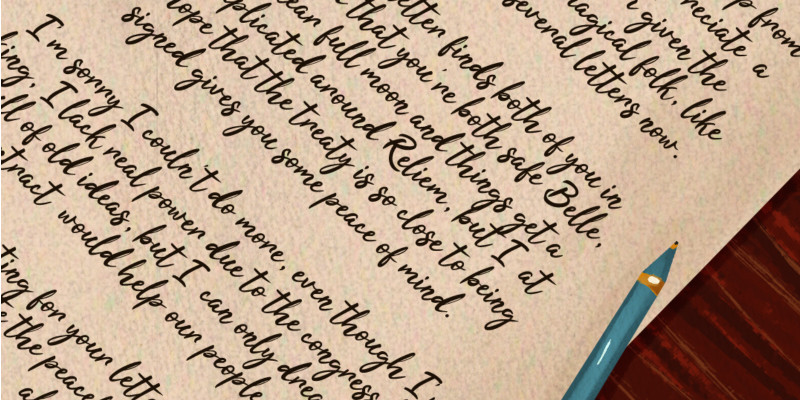 p from
reciate a
given the
agical folk, like
several letters now.
etter finds both of you in
that you're both safe Belle,
ean full moon and things get a
plicated around Reliem, but I at
ope that the treaty is so close to being
signed gives you some peace of mind.
I'm sorry I couln't do more, even though I'
ing, I lack real power due to the congress
ll of old ideas, but I can only drea
tract would help our people
ting for your lett
the peace